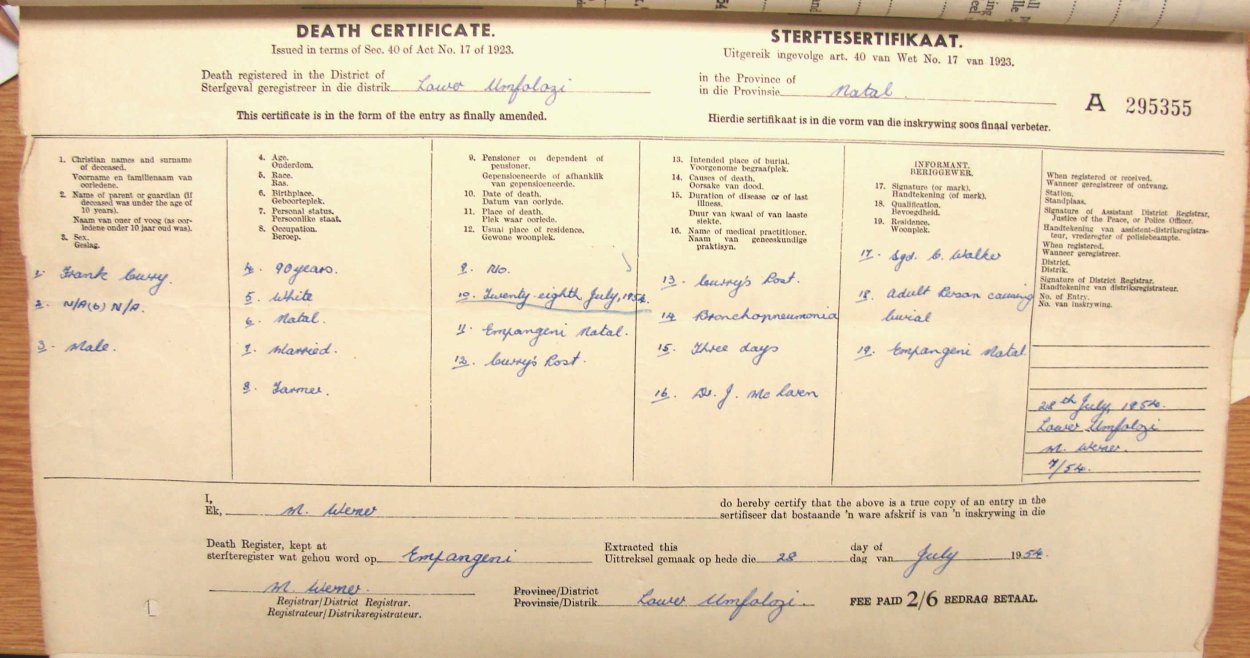 DEATH CERTIFICATE.
Issued in terms of Sec. 40 of Act No. 17 of 1923.
STERFTESERTIFIKAAT.
Uitgereik ingevolge art. 40 van Wet No. 17 van 1923.
Death registered in the District of
Sterfgeval geregistreer in die distrik Lower Umfolozi
in the Province of
in die Provinsie Natal
A 295355
This certificate is in the form of the entry as finally amended.
Hierdie sertifikaat is in die vorm van die inskrywing soos finaal verbeter.
1. Christian names and surname
of deceased.
Voorname en familienaam van
oorledene.
2. Name of parent or guardian (if
deceased was under the age of
10 years).
Naam van ouer of voog (as oor-
ledene onder 10 jaar oud was).
3. Sex.
Geslag.
1. Frank Curry.
2. N/A (b) N/A.
3. Male.
4. Age.
Ouderdom.
5. Race.
Ras.
6. Birthplace.
Geboorteplek.
7. Personal status.
Persoonlike staat.
8. Occupation.
Beroep.
4. 90 years.
5. White
6. Natal.
7. Married.
8. Farmer.
9. Pensioner or dependent of
pensioner.
Gepensioeneerde of afhanklik
van gepensioeneerde.
10. Date of death.
Datum van oorlyde.
11. Place of death.
Plek waar oorlede.
12. Usual place of residence.
Gewone woonplek.
9. No.
10. Twenty-eighth July, 1954.
11. Empangeni Natal.
12. Curry's Post.
13. Intended place of burial.
Voorgenome begraafplek.
14. Causes of death.
Oorsake van dood.
15. Duration of disease or of last
illness.
Duur van kwaal of van laaste
siekte.
16. Name of medical practitioner.
Naam van geneeskundige
praktisyn.
13. Curry's Post.
14. Bronchopneumonia
15. Three days
16. Dr. J. Mc
INFORMANT.
BERIGGEWER.
17. Signature (or mark).
Handtekening (of merk).
18. Qualification.
Bevoegdheid.
19. Residence.
Woonplek.
17. Sgd. C. Walker
18. Adult Person causing
burial
19. Empangeni Natal
When registered or received.
Wanneer geregistreer of ontvang.
Station.
Standplaas.
Signature of Assistant District Registrar,
Justice of the Peace, or Police Officer.
Handtekening van assistent-distriksregistra-
teur, vrederegter of polisiebeampte.
When registered.
Wanneer geregistreer.
District.
Distrik.
Signature of District Registrar.
Handtekening van distriksregistrateur.
No. of Entry.
No. van inskrywing.
28th July, 1954.
Lower Umfolozi
M. Werner.
7/54.
I,
Ek, M. Werner
do hereby certify that the above is a true copy of an entry in the
sertifiseer dat bostaande 'n ware afskrif is van 'n inskrywing in die
Death Register, kept at
sterfteregister wat gehou word op Empangeni
Extracted this
Uittreksel gemaak op hede die 28
day of
dag van July 1954.
M. Werner.
Registrar/District Registrar.
Registrateur/Distriksregistrateur.
Province/District
Provinsie/Distrik Lower Umfolozi.
FEE PAID 2/6 BEDRAG BETAAL.